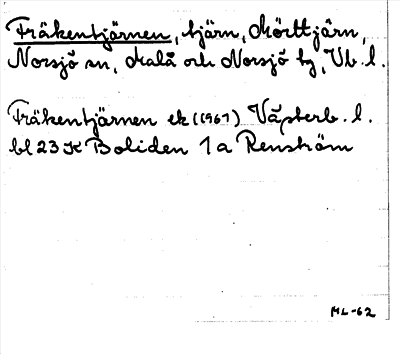 Fräkentjärnen, tjärn, Mörttjärn,
Norsjö sn, Malå och Norsjö tg, Vb. l.
Fräkentjärnen ek (1961) Västerb. l.
bl 23 K Boliden 1 a Renström
ML-62